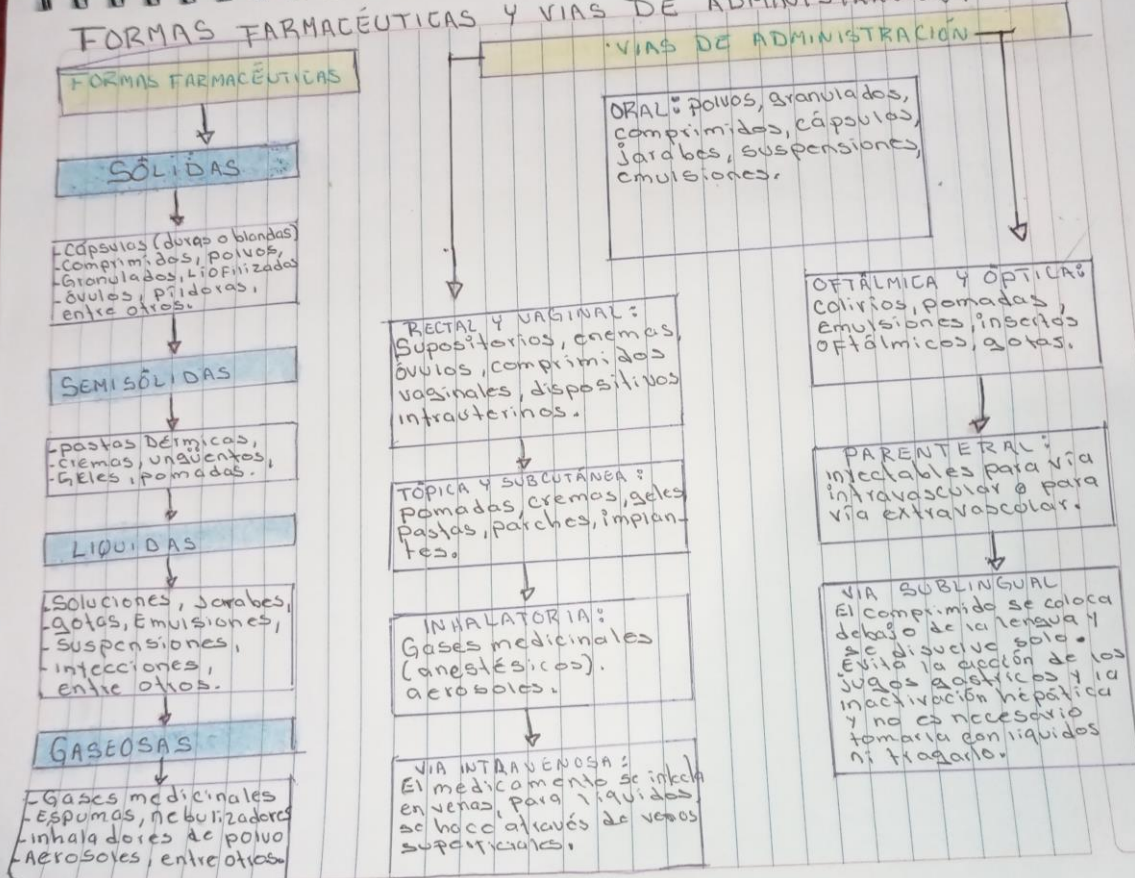 FORMAS FARMACÉUTICAS Y VIAS DE
FORMAS FARMACÉUTICAS
SÓLIDAS
-Cápsulas (duras o blandas)
-Comprimidos, polvos,
-Granulados, Liofilizados
-óvulos, píldoras,
entre otros.
SEMISÓLIDAS
-pastas Dérmicas,
-cremas, ungüentos,
-Geles, pomadas.
LIQUIDAS
-Soluciones, Jarabes,
-gotas, Emulsiones,
-suspensiones,
-inyecciones,
entre otros.
GASEOSAS
-Gases medicinales
-Espumas, nebulizadores
-inhaladores de polvo
-Aerosoles, entre otros.
VIAS DE ADMINISTRACIÓN
ORAL: polvos, granulados,
comprimidos, cápsulas,
jarabes, suspensiones,
emulsiones.
RECTAL Y VAGINAL:
Supositorios, enemas,
óvulos, comprimidos
vaginales, dispositivos
intrauterinos.
TÓPICA Y SUBCUTÁNEA:
pomadas, cremas, geles
pastas, parches, implan-
tes.
INHALATORIA:
Gases medicinales
(anestésicos).
aerosoles.
VIA INTRAVENOSA:
El medicamento se inyecta
en venas, para liquidos,
se hace através de venas
superficiales.
OFTÁLMICA Y ÓPTICA:
colirios, pomadas,
emulsiones, insertos
oftálmicos, gotas.
PARENTERAL:
inyectables para vía
intravascular o para
vía extravascolar.
VIA SUBLINGUAL
El comprimido se coloca
debajo de la lengua y
se disuelve solo.
Evita la acción de los
jugos gástricos y la
inactivación hepática
y no es necesario
tomarla con liquidos
ni tragarlo.